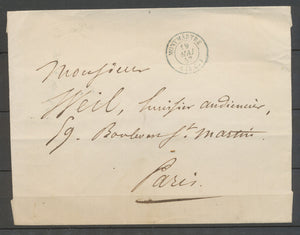 MONTMARTRE
19
MAI
Monsieur
Weil, huissier audiencier,
59. Boulevard St Martin
à
Paris.